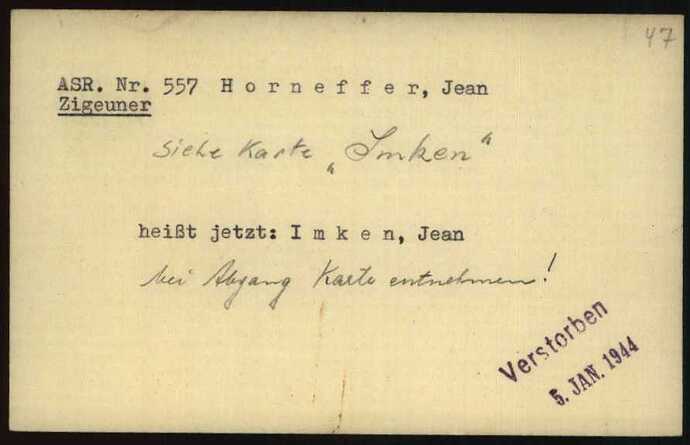 47
ASR. Nr. 557 Horneffer, Jean
Zigeuner
siehe Karte „Imken“
heißt jetzt: Imken, Jean
bei Abgang Karte entnehmen!
Verstorben
5. JAN. 1944